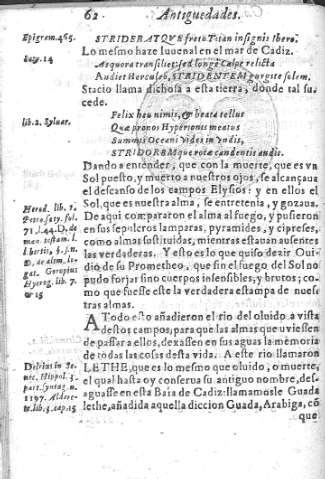 62 Antiguedades.
Epigram. 465.
STRIDERATQVE freto Titan insignis Ibero.
Lo mesmo haze Iuuenal en el mar de Cadiz.
Saty. 14
Aequora transiliet: sed longè Calpe relicta
Audiet Herculeo, STRIDENTEM gurgite solem.
Stacio llama dichosa a esta tierra, donde tal su-
cede.
Felix heu nimis, & beata tellus
lib. 2. Syluar.
Quæ pronos Hyperionis meatus
Summis Oceani vides in vndis,
STRIDOREMque rotæ cadentis audis.
Dando a entender, que con la muerte, que es vn
Sol puesto, y muerto a nuestros ojos, se alcançaua
el descanso de los campos Elysios: y en ellos el
Sol, que es nuestra alma, se entretenia, y gozaua.
De aqui compararon el alma al fuego, y pusieron
en sus sepulcros lamparas, pyramides, y cipreses,
como almas sostituidas, mientras estauan ausentes
las verdaderas. Y esto es lo que quiso dezir Oui-
dio de su Prometheo, que sin el fuego del Sol no
pudo forjar sino cuerpos insensibles, y brutos; co-
mo que fuesse este la verdadera estampa de nues-
tras almas.
Herod. lib. 2.
Petro. saty. fol.
71. l. 44. D. de
man. testam. l.
D. de alim. le-
gat. Goropius
Hyerog. lib. 7.
& 15
A Todo esto añadieron el rio del oluido a vista
destos campos, para que las almas que viessen
de passar a ellos, dexassen en sus aguas la memoria
de todas las cosas desta vida. A este rio llamaron
LETHE, que es lo mesmo que oluido, o muerte,
el qual hasta oy conserua su antiguo nombre, des-
aguasse en esta Baia de Cadiz: llamamosle Guada
lethe, añadida aquella diccion Guada, Arabiga, cõ
que
Delrius in Se-
nec. Hippol. 3.
part. syntag. n.
1197. Aldere-
te. lib. 3. cap. 15